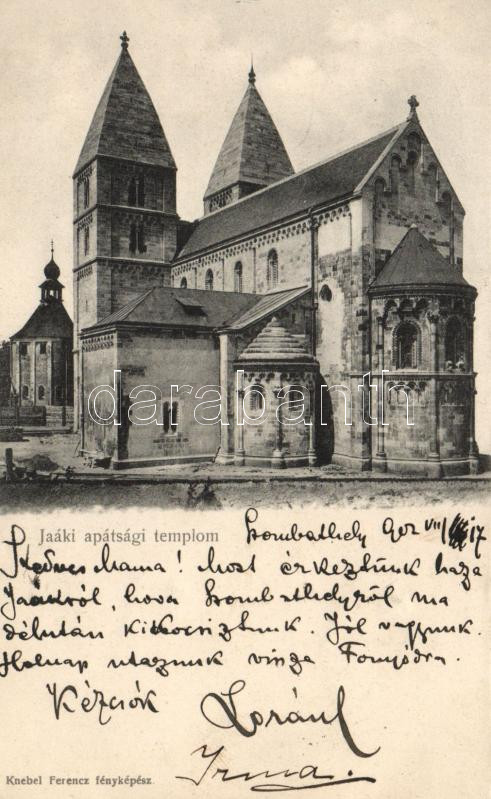 darabanth
Jaáki apátsági templom
Szombathely 902 VII/17
Kedves Mama! most érkeztünk haza
Jaákról, hova Szombathelyről ma
délután kikocsiztunk. Jól vagyunk.
Holnap utazunk vissza Fonyódra.
Kézcsók
Loránd
Irma.
Knebel Ferencz fényképész.